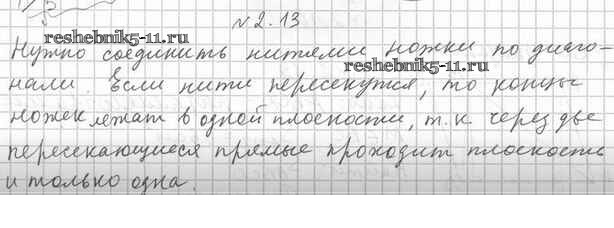 № 2.13
reshebnik5-11.ru
Нужно соединить нитями ножки по диаго-
reshebnik5-11.ru
нали. Если нити пересекутся, то концы
ножек лежат в одной плоскости, т.к. через две
пересекающиеся прямые проходит плоскость
и только одна.